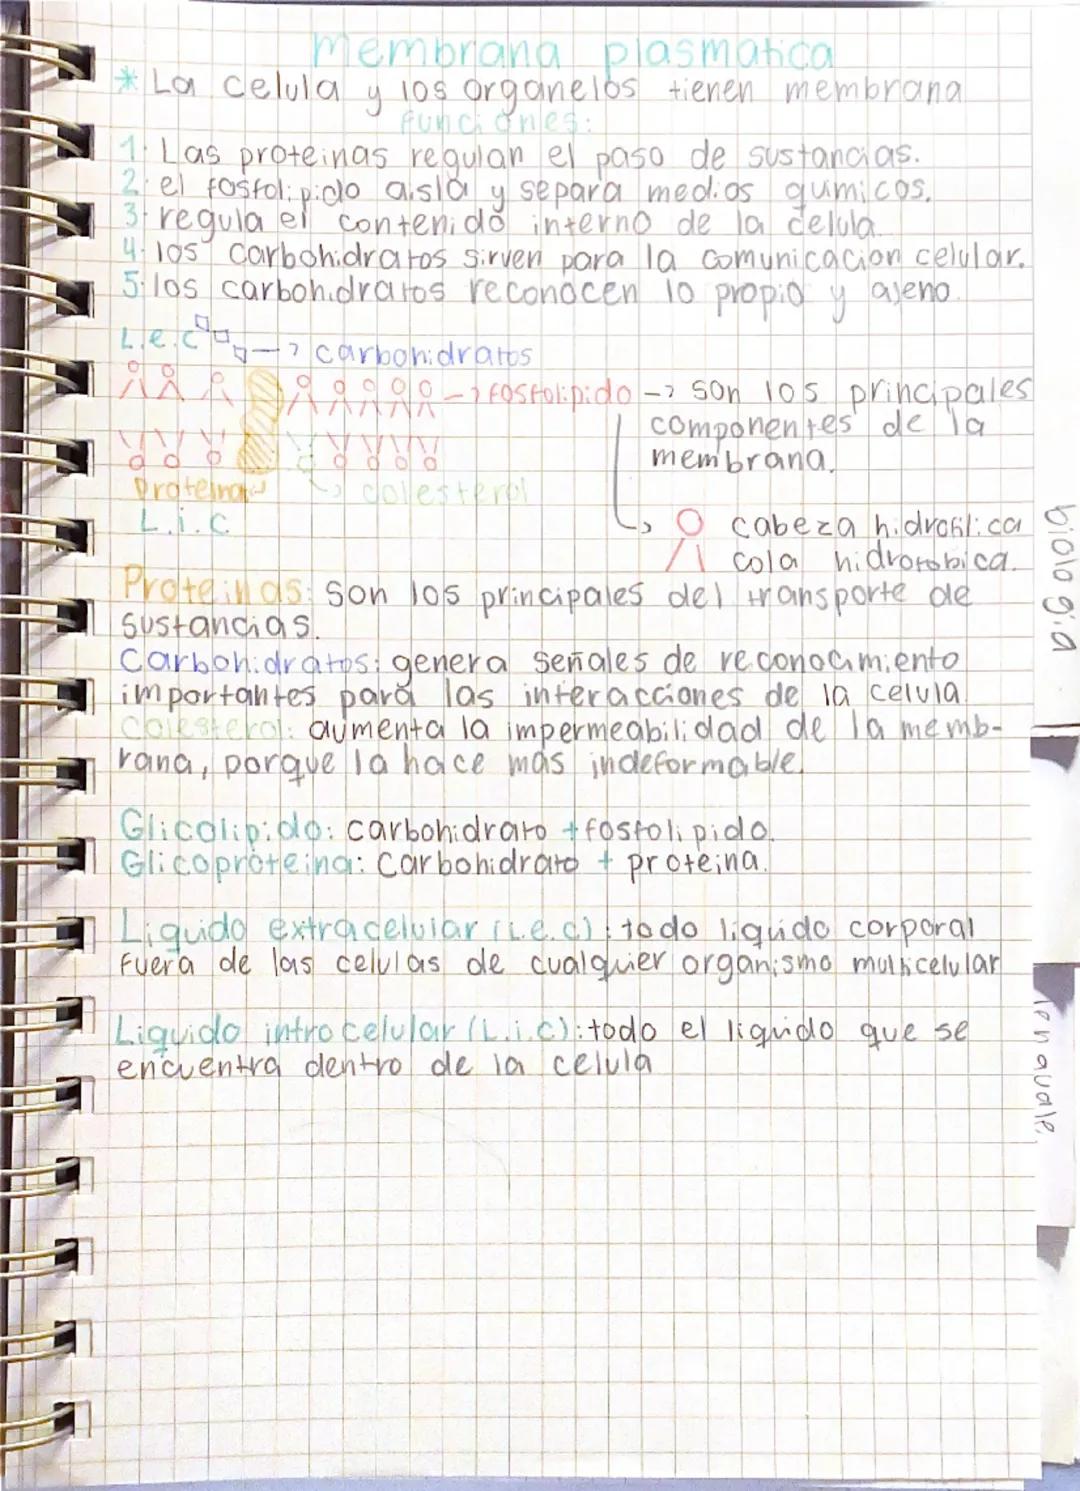 membrana plasmatica
* La celula y los organelos tienen membrana
funciones:
1. Las proteinas regulan el paso de sustancias.
2. el fosfolipido aisla y separa medios quimicos.
3. regula el contenido interno de la celula.
4. los carbohidratos sirven para la comunicacion celular.
5. los carbohidratos reconocen lo propio y ajeno.
L.e.c → carbohidratos
→ fosfolipido → son los principales
componentes de la
membrana.
proteina
→ colesterol
L.i.c
→ cabeza hidrofilica
cola hidrofobica.
Proteinas: son los principales del transporte de
sustancias.
Carbohidratos: genera señales de reconocimiento
importantes para las interacciones de la celula.
colesterol: aumenta la impermeabilidad de la memb-
rana, porque la hace mas indeformable.
Glicolipido: carbohidrato + fosfolipido.
Glicoproteina: Carbohidrato + proteina.
Liquido extracelular (L.e.c): todo liquido corporal
fuera de las celulas de cualquier organismo multicelular
Liquido introcelular (L.i.c): todo el liquido que se
encuentra dentro de la celula
biologia